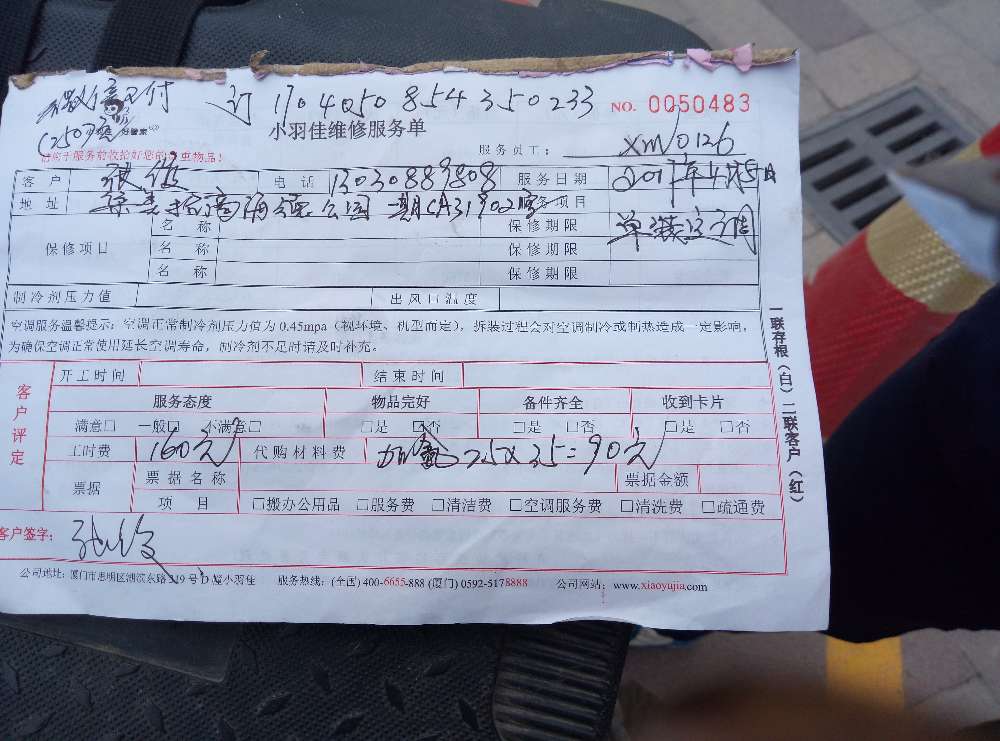 微信支付 订1704050854350233 NO. 0050483
(250元) 好管家 小羽佳维修服务单
服务员工： xm0126
请您于服务前收拾好您的贵重物品！
客户 张俊 电话 13030889808 服务日期 2017年4月5日
地址 一期 服务项目 单装空调
名称 保修期限
保修项目 名称 保修期限
名称 保修期限
制冷剂压力值 出风口温度
空调服务温馨提示：空调正常制冷剂压力值为0.45mpa（视环境、机型而定），拆装过程会对空调制冷或制热造成一定影响，
为确保空调正常使用延长空调寿命，制冷剂不足时请及时补充。
客户评定
开工时间 结束时间
服务态度 物品完好 备件齐全 收到卡片
满意□ 一般□ 不满意□ □是 □否 □是 □否 □是 □否
工时费 160元 代购材料费 25×35=90元
票据 票据名称 票据金额
项目 □搬办公用品 □服务费 □清洁费 □空调服务费 □清洗费 □疏通费
客户签字： 张俊
公司地址：厦门市思明区湖滨东路319号D 小羽佳 服务热线：(全国) 400-6655-888 (厦门) 0592-5178888 公司网站：www.xiaoyujia.com
一联存根（白）二联客户（红）